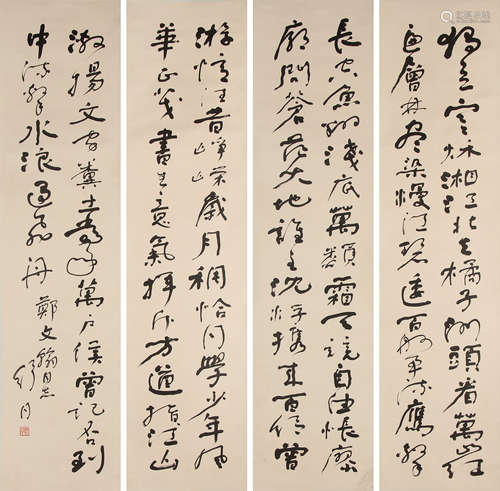 獨立寒秋湘江北去橘子洲頭看萬山紅
遍層林盡染漫江碧透百舸爭流鷹擊
長空魚翔淺底萬類霜天競自由悵寥
廓問蒼茫大地誰主沉浮攜來百侶曾
游憶往昔崢嶸歲月稠恰同學少年風
華正茂書生意氣揮斥方遒指江山
激揚文字糞土當年萬戶侯曾記否到
中流擊水浪遏飛舟
鄭文翰同志
舒同